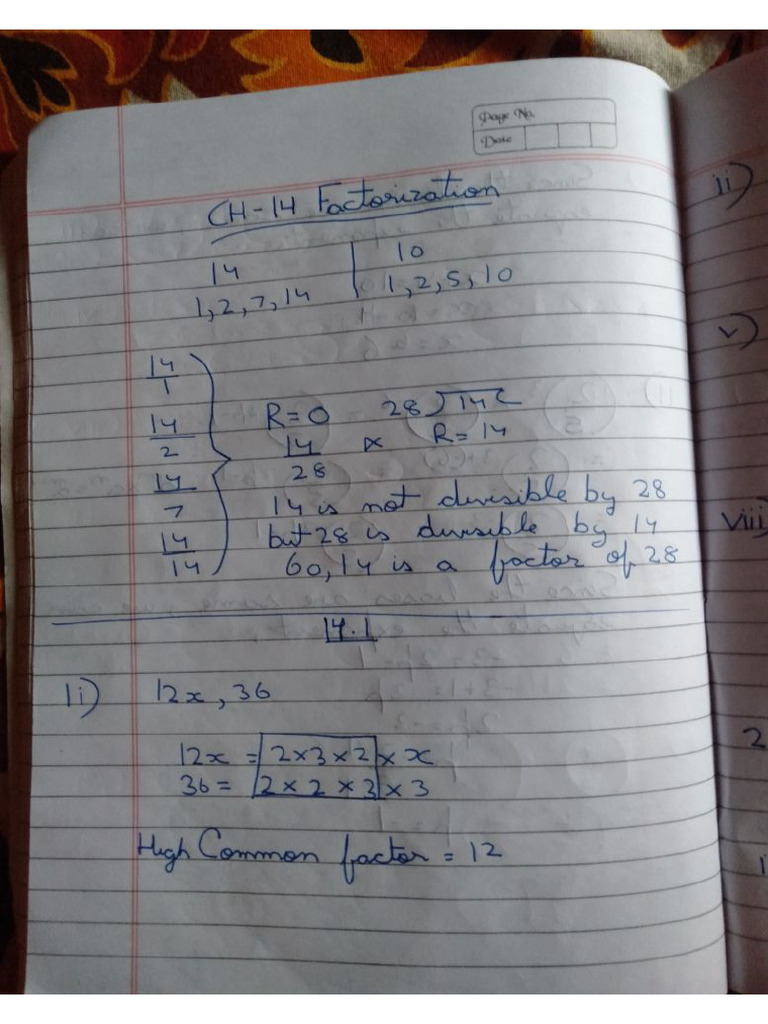 Page No.
Date
CH-14 Factorization
14 | 10
1, 2, 7, 14 | 1, 2, 5, 10
14/1
14/2
14/7
14/14
R=0 28)14(
14/28 × R=14
14 is not divisible by 28
but 28 is divisible by 14
60, 14 is a factor of 28
14.1
1i) 12x, 36
12x = 2×3×2 × x
36 = 2×2×3 × 3
High Common factor = 12
ii)
v)
viii)
2